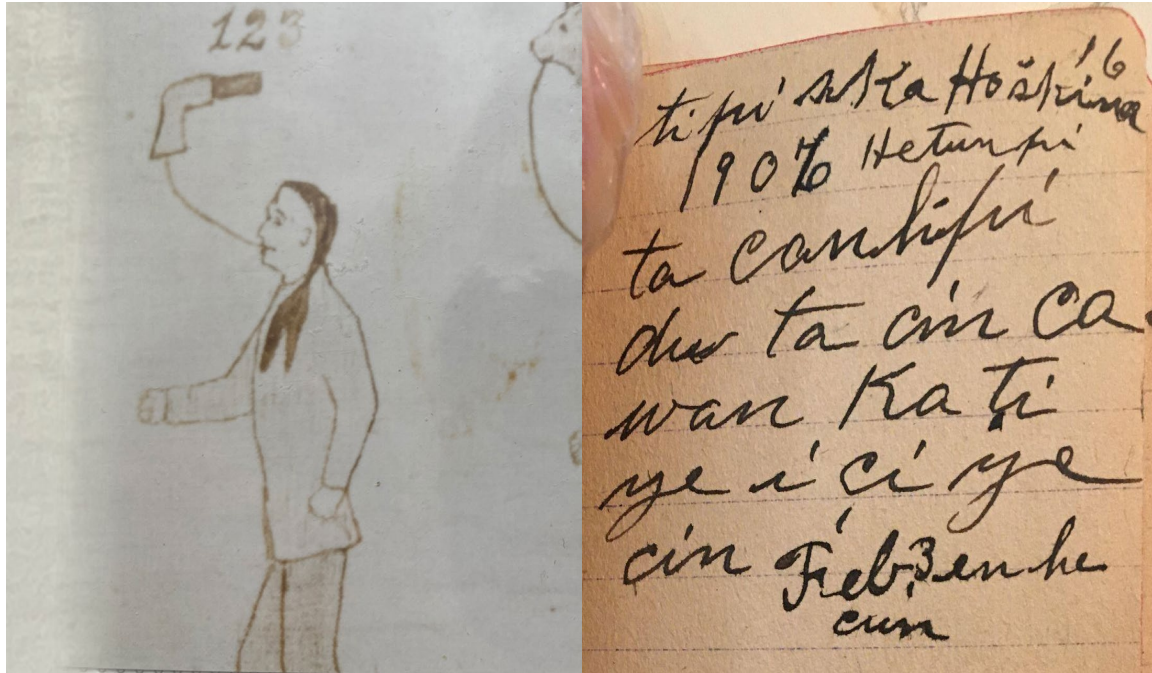 123
16
tipi ska Hoškina
1907 Hetunpi
ta canhipi
du ta cin ca
wan Ka ti
ye i çi ye
cin Feb 3 en he
cun